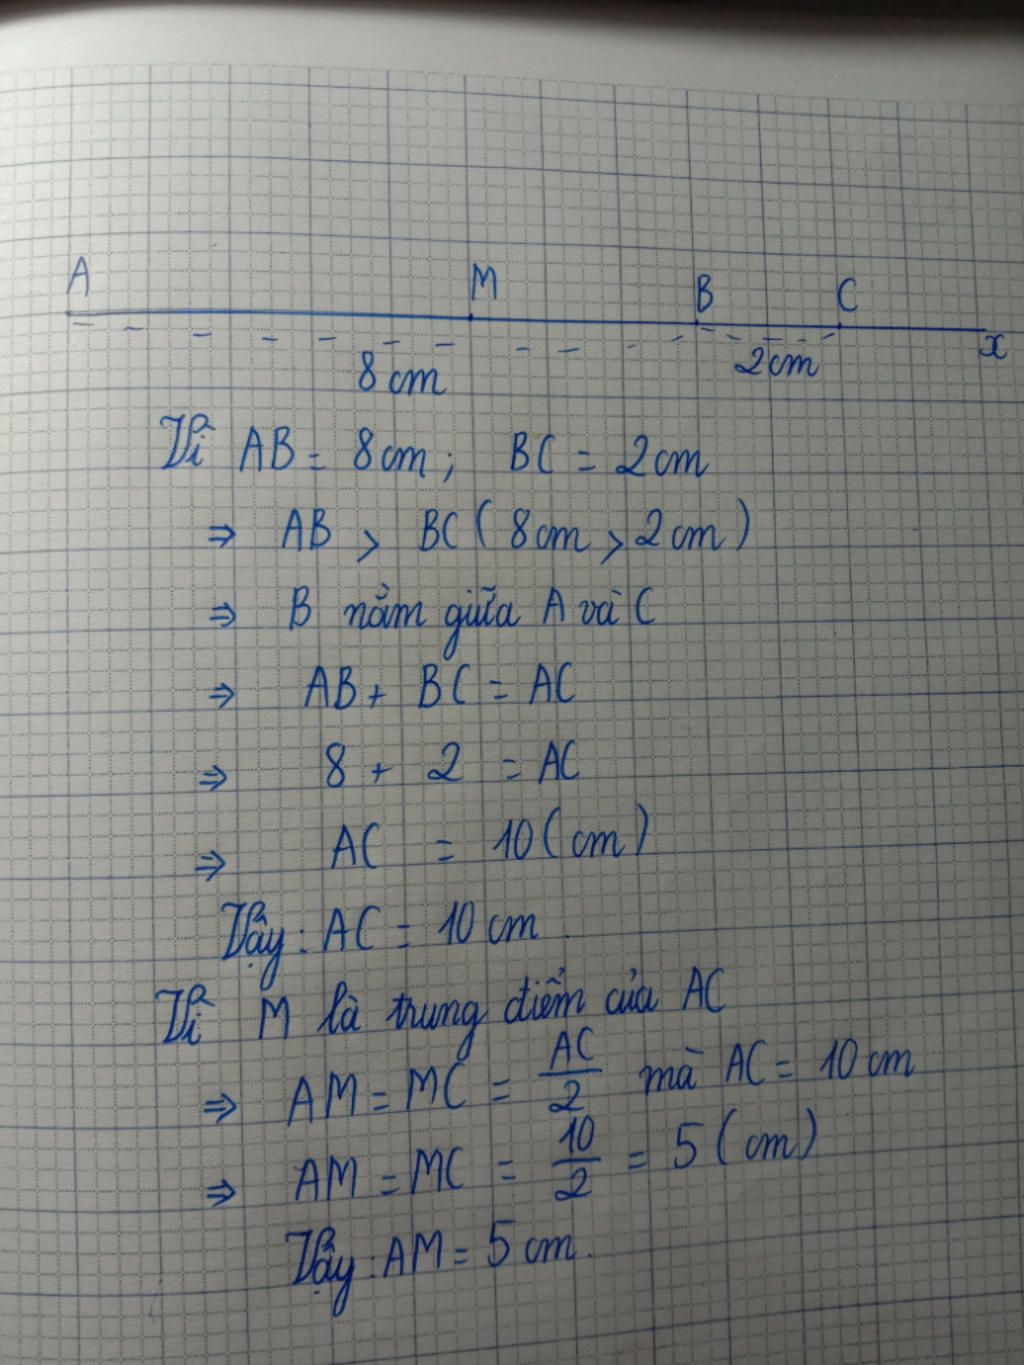 A M B C
8cm 2cm x
Vì AB = 8cm; BC = 2cm
⇒ AB > BC (8cm > 2cm)
⇒ B nằm giữa A và C
⇒ AB + BC = AC
⇒ 8 + 2 = AC
⇒ AC = 10 (cm)
Vậy: AC = 10 cm.
Vì M là trung điểm của AC
⇒ AM = MC = AC/2 mà AC = 10 cm
⇒ AM = MC = 10/2 = 5 (cm)
Vậy: AM = 5 cm.